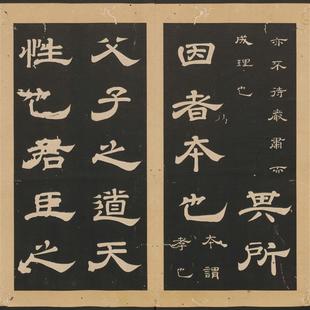 亦不待嚴肅而
成理也
其所
因者本也
本謂
孝也
父子之道天
性也君臣之